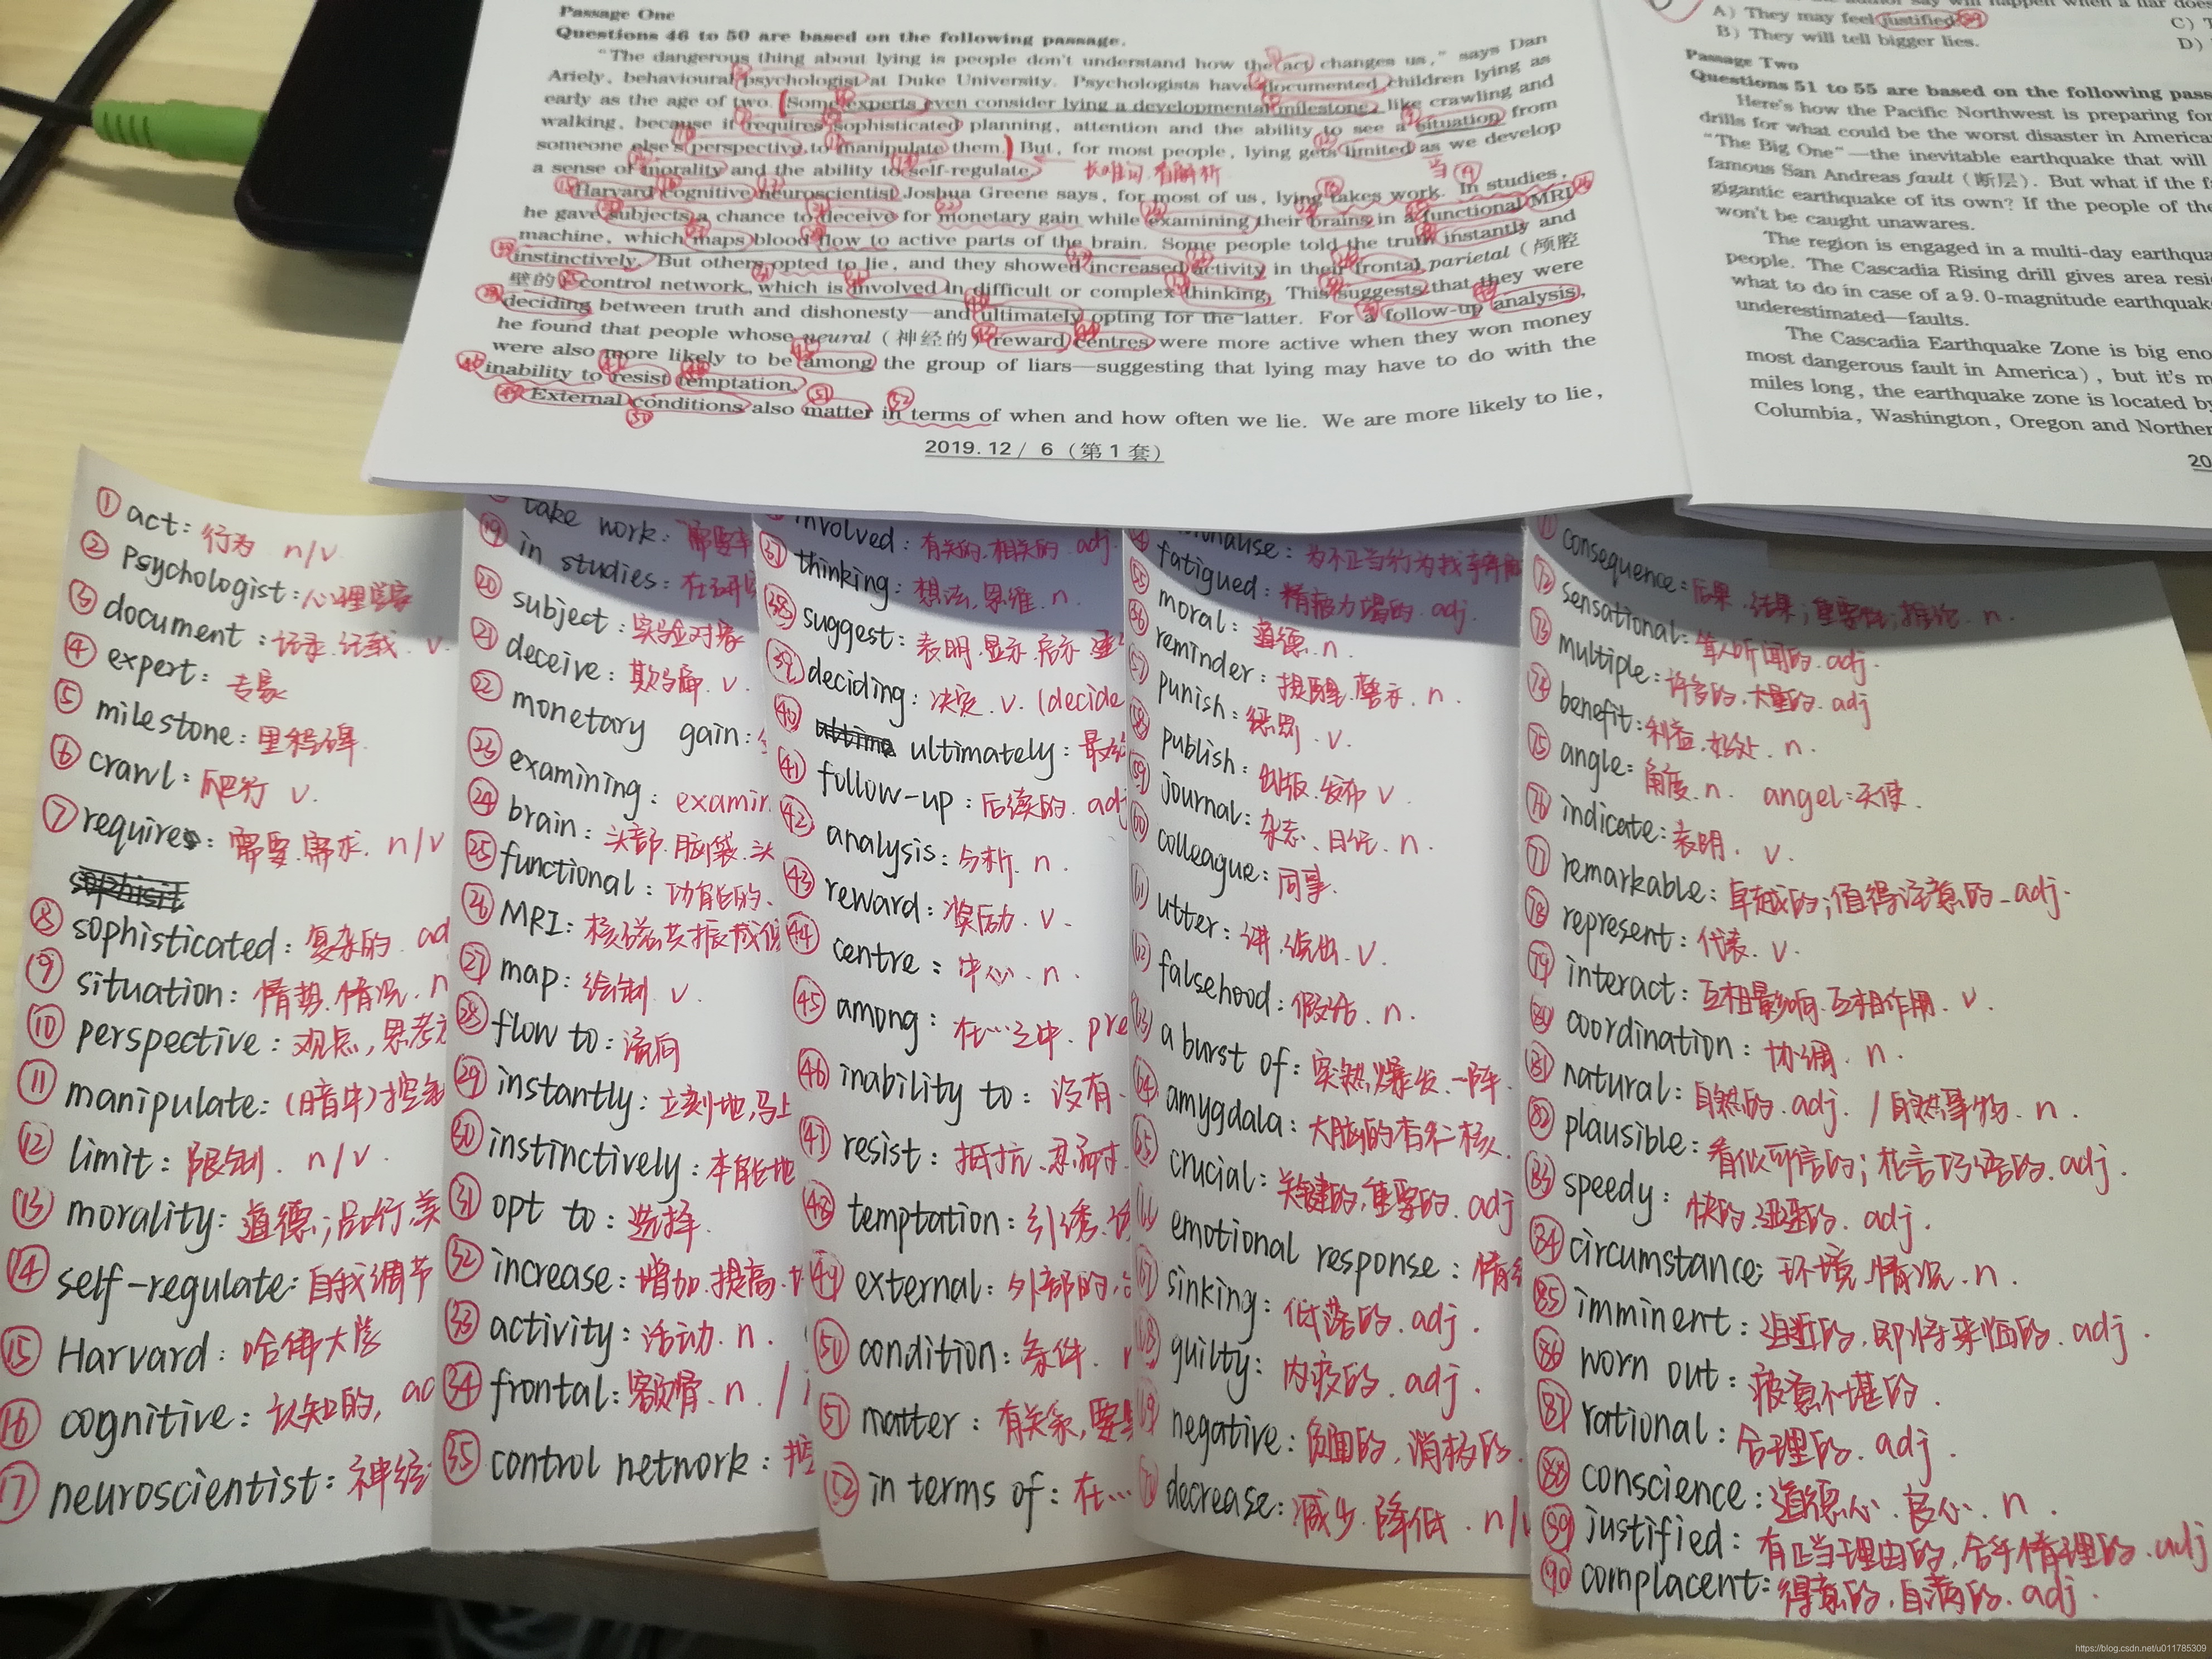 Passage One
Questions 46 to 50 are based on the following passage.
"The dangerous thing about lying is people don't understand how the act changes us," says Dan
Ariely, behavioural psychologist at Duke University. Psychologists have documented children lying as
early as the age of two. Some experts even consider lying a developmental milestone, like crawling and
walking, because it requires sophisticated planning, attention and the ability to see a situation from
someone else's perspective to manipulate them. But, for most people, lying gets limited as we develop
a sense of morality and the ability to self-regulate.
长难句 看解析
Harvard cognitive neuroscientist Joshua Greene says, for most of us, lying takes work. In studies,
he gave subjects a chance to deceive for monetary gain while examining their brains in a functional MRI
machine, which maps blood flow to active parts of the brain. Some people told the truth instantly and
instinctively. But others opted to lie, and they showed increased activity in their frontal parietal (颅腔
壁的) control network, which is involved in difficult or complex thinking. This suggests that they were
deciding between truth and dishonesty—and ultimately opting for the latter. For a follow-up analysis,
he found that people whose neural (神经的) reward centres were more active when they won money
were also more likely to be among the group of liars—suggesting that lying may have to do with the
inability to resist temptation.
External conditions also matter in terms of when and how often we lie. We are more likely to lie,
2019.12/ 6 (第1套)
A) They may feel justified.
B) They will tell bigger lies.
C)
D)
Passage Two
Questions 51 to 55 are based on the following
Here's how the Pacific Northwest is preparing for
drills for what could be the worst disaster in American
"The Big One"—the inevitable earthquake that will
famous San Andreas fault (断层). But what if the
gigantic earthquake of its own? If the people of the
won't be caught unawares.
The region is engaged in a multi-day
people. The Cascadia Rising drill gives area
what to do in case of a 9.0-magnitude
underestimated—faults.
The Cascadia Earthquake Zone is big
most dangerous fault in America), but it's
miles long, the earthquake zone is located
Columbia, Washington, Oregon and
20
① act: 行为 n/v
② Psychologist: 心理学家
③ document: 记录.记载. v
④ expert: 专家
⑤ milestone: 里程碑
⑥ crawl: 爬行 v.
⑦ requires: 需要.需求. n/v
⑧ sophisticated: 复杂的. ad
⑨ situation: 情势.情况. n
⑩ perspective: 观点,思考
⑪ manipulate: (暗中)控制
⑫ limit: 限制. n/v.
⑬ morality: 道德;品行.美
⑭ self-regulate: 自我调节
⑮ Harvard: 哈佛大学
⑯ cognitive: 认知的, ad
⑰ neuroscientist: 神经
take work: 需要
⑲ in studies: 在研
⑳ subject: 实验对象
㉑ deceive: 欺骗. v.
㉒ monetary gain:
㉓ examining: examin
㉔ brain: 头部.脑袋.头
㉕ functional: 功能的.
㉖ MRI: 核磁共振成像
㉗ map: 绘制 v.
㉘ flow to: 流向
㉙ instantly: 立刻地,马上
㉚ instinctively: 本能地
㉛ opt to: 选择.
㉜ increase: 增加.提高.
㉝ activity: 活动. n.
㉞ frontal: 额骨. n. /
㉟ control network: 控
involved: 有关的,相关的. adj.
㊲ thinking: 想法,思维. n.
㊳ suggest: 表明.显示.启示
㊴ deciding: 决定. v. (decide
㊵ ultimately: 最终
㊶ follow-up: 后续的. adj
㊷ analysis: 分析. n.
㊸ reward: 奖励. v.
㊹ centre: 中心. n.
㊺ among: 在…之中. pre
㊻ inability to: 没有
㊼ resist: 抵抗.忍耐.
㊽ temptation: 引诱.
㊾ external: 外部的.
㊿ condition: 条件.
51 matter: 有关系,要
52 in terms of: 在…
为不正当行为找
55 fatigued: 精疲力竭的. adj.
moral: 道德. n.
56 reminder: 提醒.警示. n.
57 punish: 惩罚. v.
58 publish: 出版.发布 v.
59 journal: 杂志.日记. n.
60 colleague: 同事.
61 utter: 讲. v.
62 falsehood: 假话. n.
63 a burst of: 突然爆发.一阵.
64 amygdala: 大脑的杏仁核.
65 crucial: 关键的,重要的. adj
emotional response: 情绪
67 sinking: 低落的. adj.
68 guilty: 内疚的. adj.
69 negative: 负面的,消极的.
70 decrease: 减少.降低. n/
consequence: 后果.结果;重要性;推论. n.
72 sensational: 耸人听闻的. adj.
73 multiple: 许多的.大量的. adj
74 benefit: 利益.好处. n.
75 angle: 角度. n. angel: 天使.
76 indicate: 表明. v.
77 remarkable: 卓越的;值得注意的. adj.
78 represent: 代表. v.
79 interact: 互相影响.互相作用. v.
80 coordination: 协调. n.
81 natural: 自然的. adj. / 自然事物. n.
82 plausible: 看似可信的;花言巧语的. adj.
83 speedy: 快的.迅速的. adj.
84 circumstance: 环境.情况. n.
85 imminent: 迫近的,即将来临的. adj.
86 worn out: 疲惫不堪的.
87 rational: 合理的. adj.
88 conscience: 道德心.良心. n.
89 justified: 有正当理由的,合乎情理的. adj
90 complacent: 得意的,自满的. adj.
https://blog.csdn.net/u011785309